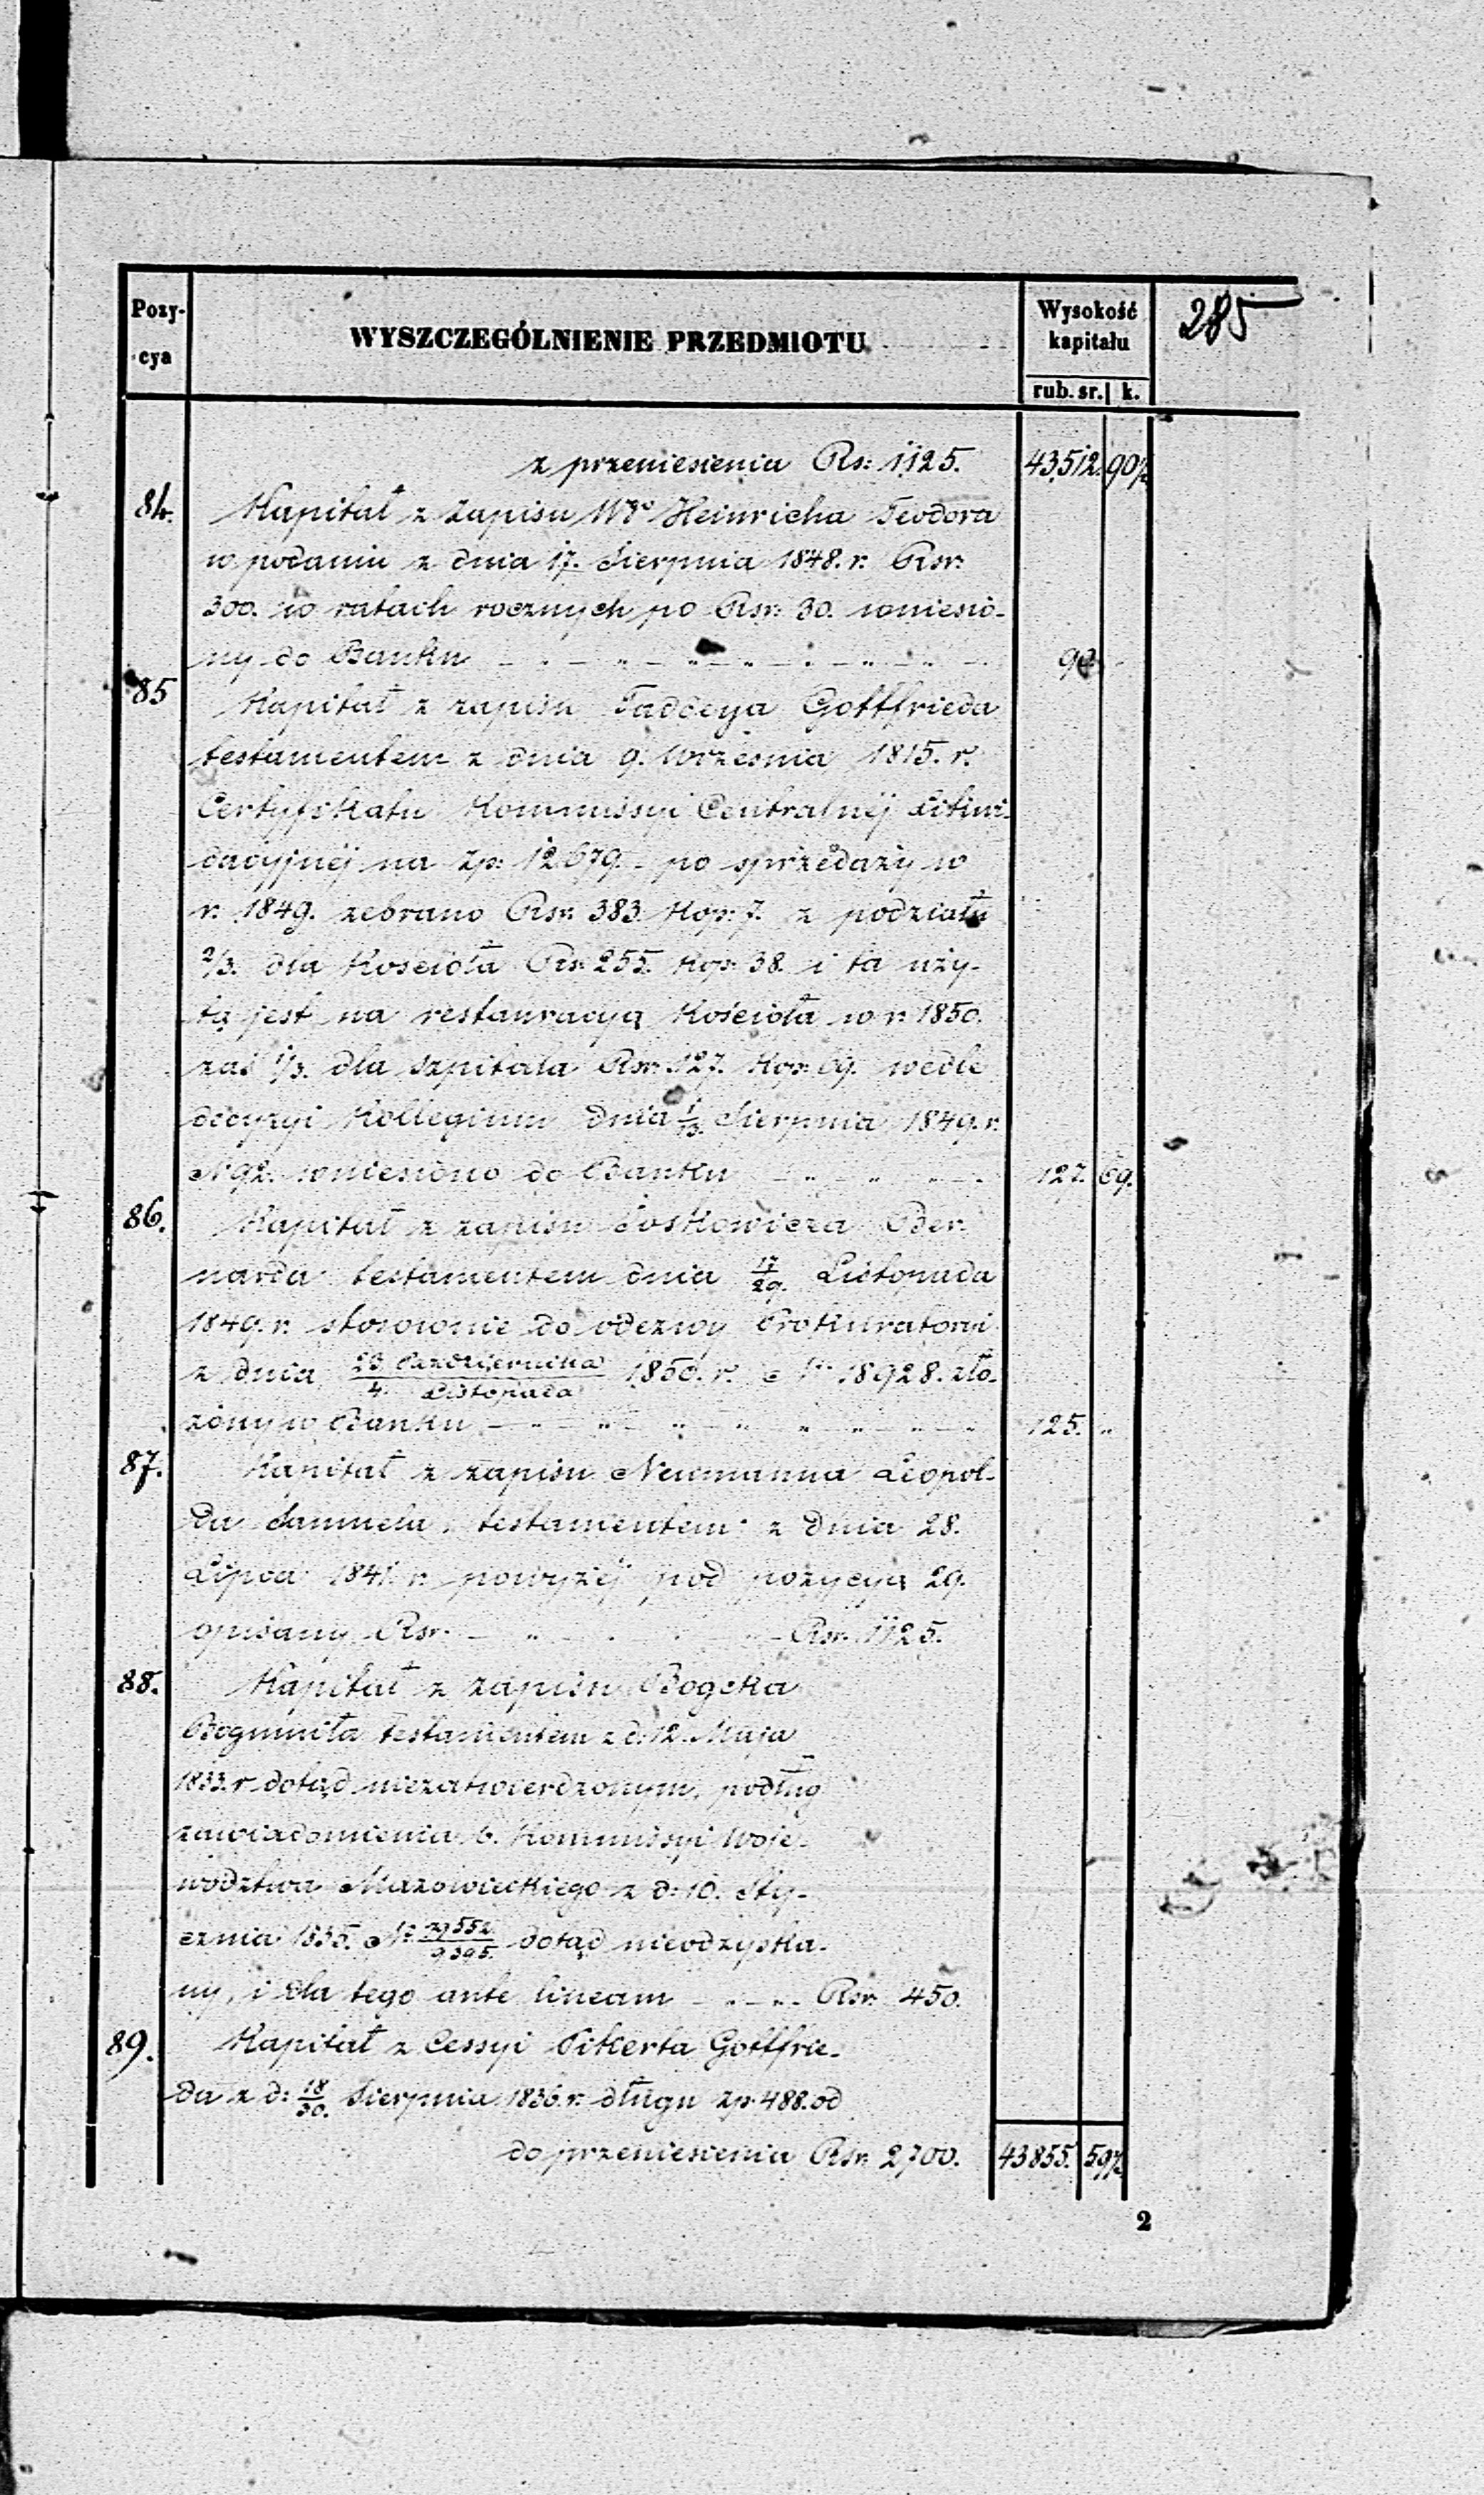 285
Pozy-
cya
WYSZCZEGÓLNIENIE PRZEDMIOTU
Wysokość
kapitału
rub. sr. k.
z przeniesienia Rs: 1125. 43,512. 90½
84. Kapitał z zapisu Heinricha Teodora
w podaniu z dnia 17. Sierpnia 1848. r. Rsr:
300. w ratach rocznych po Rsr: 30. wniesio-
ny do Banku 90
85 Kapitał z zapisu Taddeya Gottfrieda
testamentem z dnia 9. Września 1815. r.
Certyfikatu Kommissyi Centralnéj Likwi-
dacyjnéj na Zp: 12,679. po sprzedaży w
r. 1849. zebrano Rsr. 383. Kop: 7. z podziału
2/3. dla Kościoła Rs: 255. Kop: 38. i ta uży-
tą jest na restauracyą Kościoła w r. 1850.
zaś 1/3. dla szpitala Rsr: 127. Kop: 69. wedle
decyzyi Kollegium dnia 1/13. Sierpnia 1849. r.
N 92. wniesiono do Banku 127. 69.
86. Kapitał z zapisu Loskowicza Ber-
narda testamentem dnia 17/29. Listopada
1849. r. stosownie do odezwy Prokuratoryi
z dnia 23 Października/4. Listopada 1850. r. 18928. zło-
żony w Banku 125. "
87. Kapitał z zapisu Neumanna Leopol-
da Samuela, testamentem z dnia 28.
Lipca 1841. r. powyżéj pod pozycyą 29.
opisany Rsr. Rsr. 1125.
88. Kapitał z zapisu Bogcka
Bogumiła testamentem z d: 12. Maja
1833. r. dotąd niezatwierdzonym, podług
zawiadomienia b. Kommissyi Woje-
wództwa Mazowieckiego z d: 10. Sty-
cznia 1835. Nº 29552/9395. dotąd nieodzyska-
ny, i dla tego ante lineam Rsr. 450.
89. Kapitał z Cessyi Pikerta Gottfrie-
da z d: 18/30. Sierpnia 1836. r. długu Zp. 488. od
do przeniesienia Rsr. 2700. 43855. 59½
2